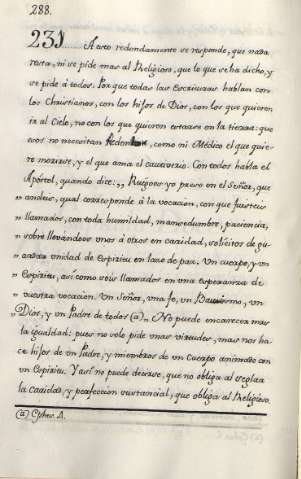 288.
231 A esto redondamente se responde, que nada
resta, ni se pide mas al Religioso, que lo que se ha dicho, y
se pide á todos. Porque todas las Escrituras hablan con
los Christianos, con los hijos de Dios, con los que quieren
ir al Cielo, no con los que quieren estarse en la tierra: que
esos no necesitan , como ni Médico el que quie-
re morirse, y el que ama el cautiverio. Con todos habla el
Apóstol, quando dice: „ Ruegoos yo preso en el Señor, que
„ andeis, qual corresponde á la vocación, con que fuisteis
„ llamados, con toda humildad, mansedumbre, paciencia,
„ sobrellevándoos unos á otros en caridad, solícitos de gu-
„ ardar unidad de espiritu en lazo de paz. Un cuerpo, y un
„ Espiritu, asi como sois llamados en una esperanza de
„ vuestra vocacion. Un Señor, una fe, un Bautismo, un
„ Dios, y un Padre de todos (a) „ No puede encarecer mas
la igualdad: pues no solo pide unas virtudes, mas nos ha-
ce hijos de un Padre, y miembros de un Cuerpo animado con
un Espiritu. Y asi no puede decirse, que no obliga al seglar
la caridad, y perfección sustancial, que obliga al Religioso.
(a) Ephes. 4.